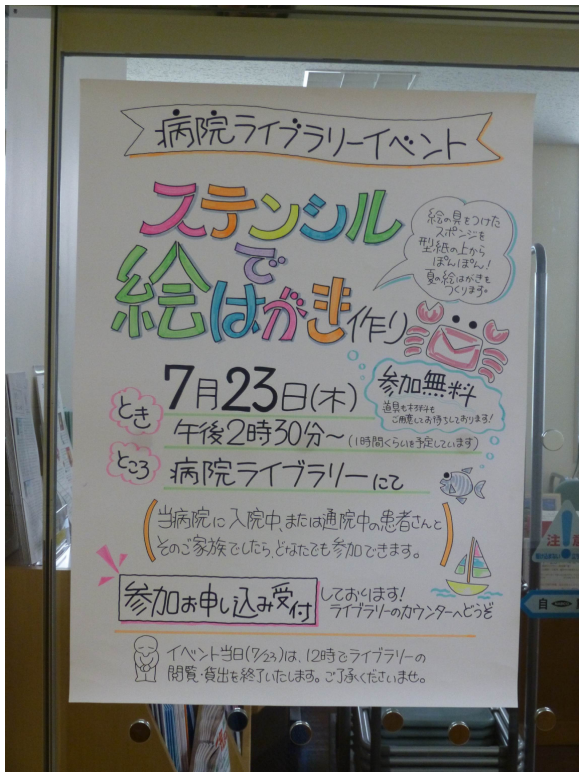 病院ライブラリーイベント
ステンシル
で
絵はがき作り
絵の具をつけた
スポンジを
型紙の上から
ぽんぽん!
夏の絵はがきを
つくります。
とき
7月23日(木)
午後2時30分〜(1時間くらいを予定しています)
参加無料
道具も材料も
ご用意してお待ちしております!
ところ
病院ライブラリーにて
当病院に入院中、または通院中の患者さんと
そのご家族でしたら、どなたでも参加できます。
参加お申し込み受付
しております!
ライブラリーのカウンターへどうぞ
イベント当日(7/23)は、12時でライブラリーの
閲覧・貸出を終了いたします。ご了承くださいませ。
注意
自